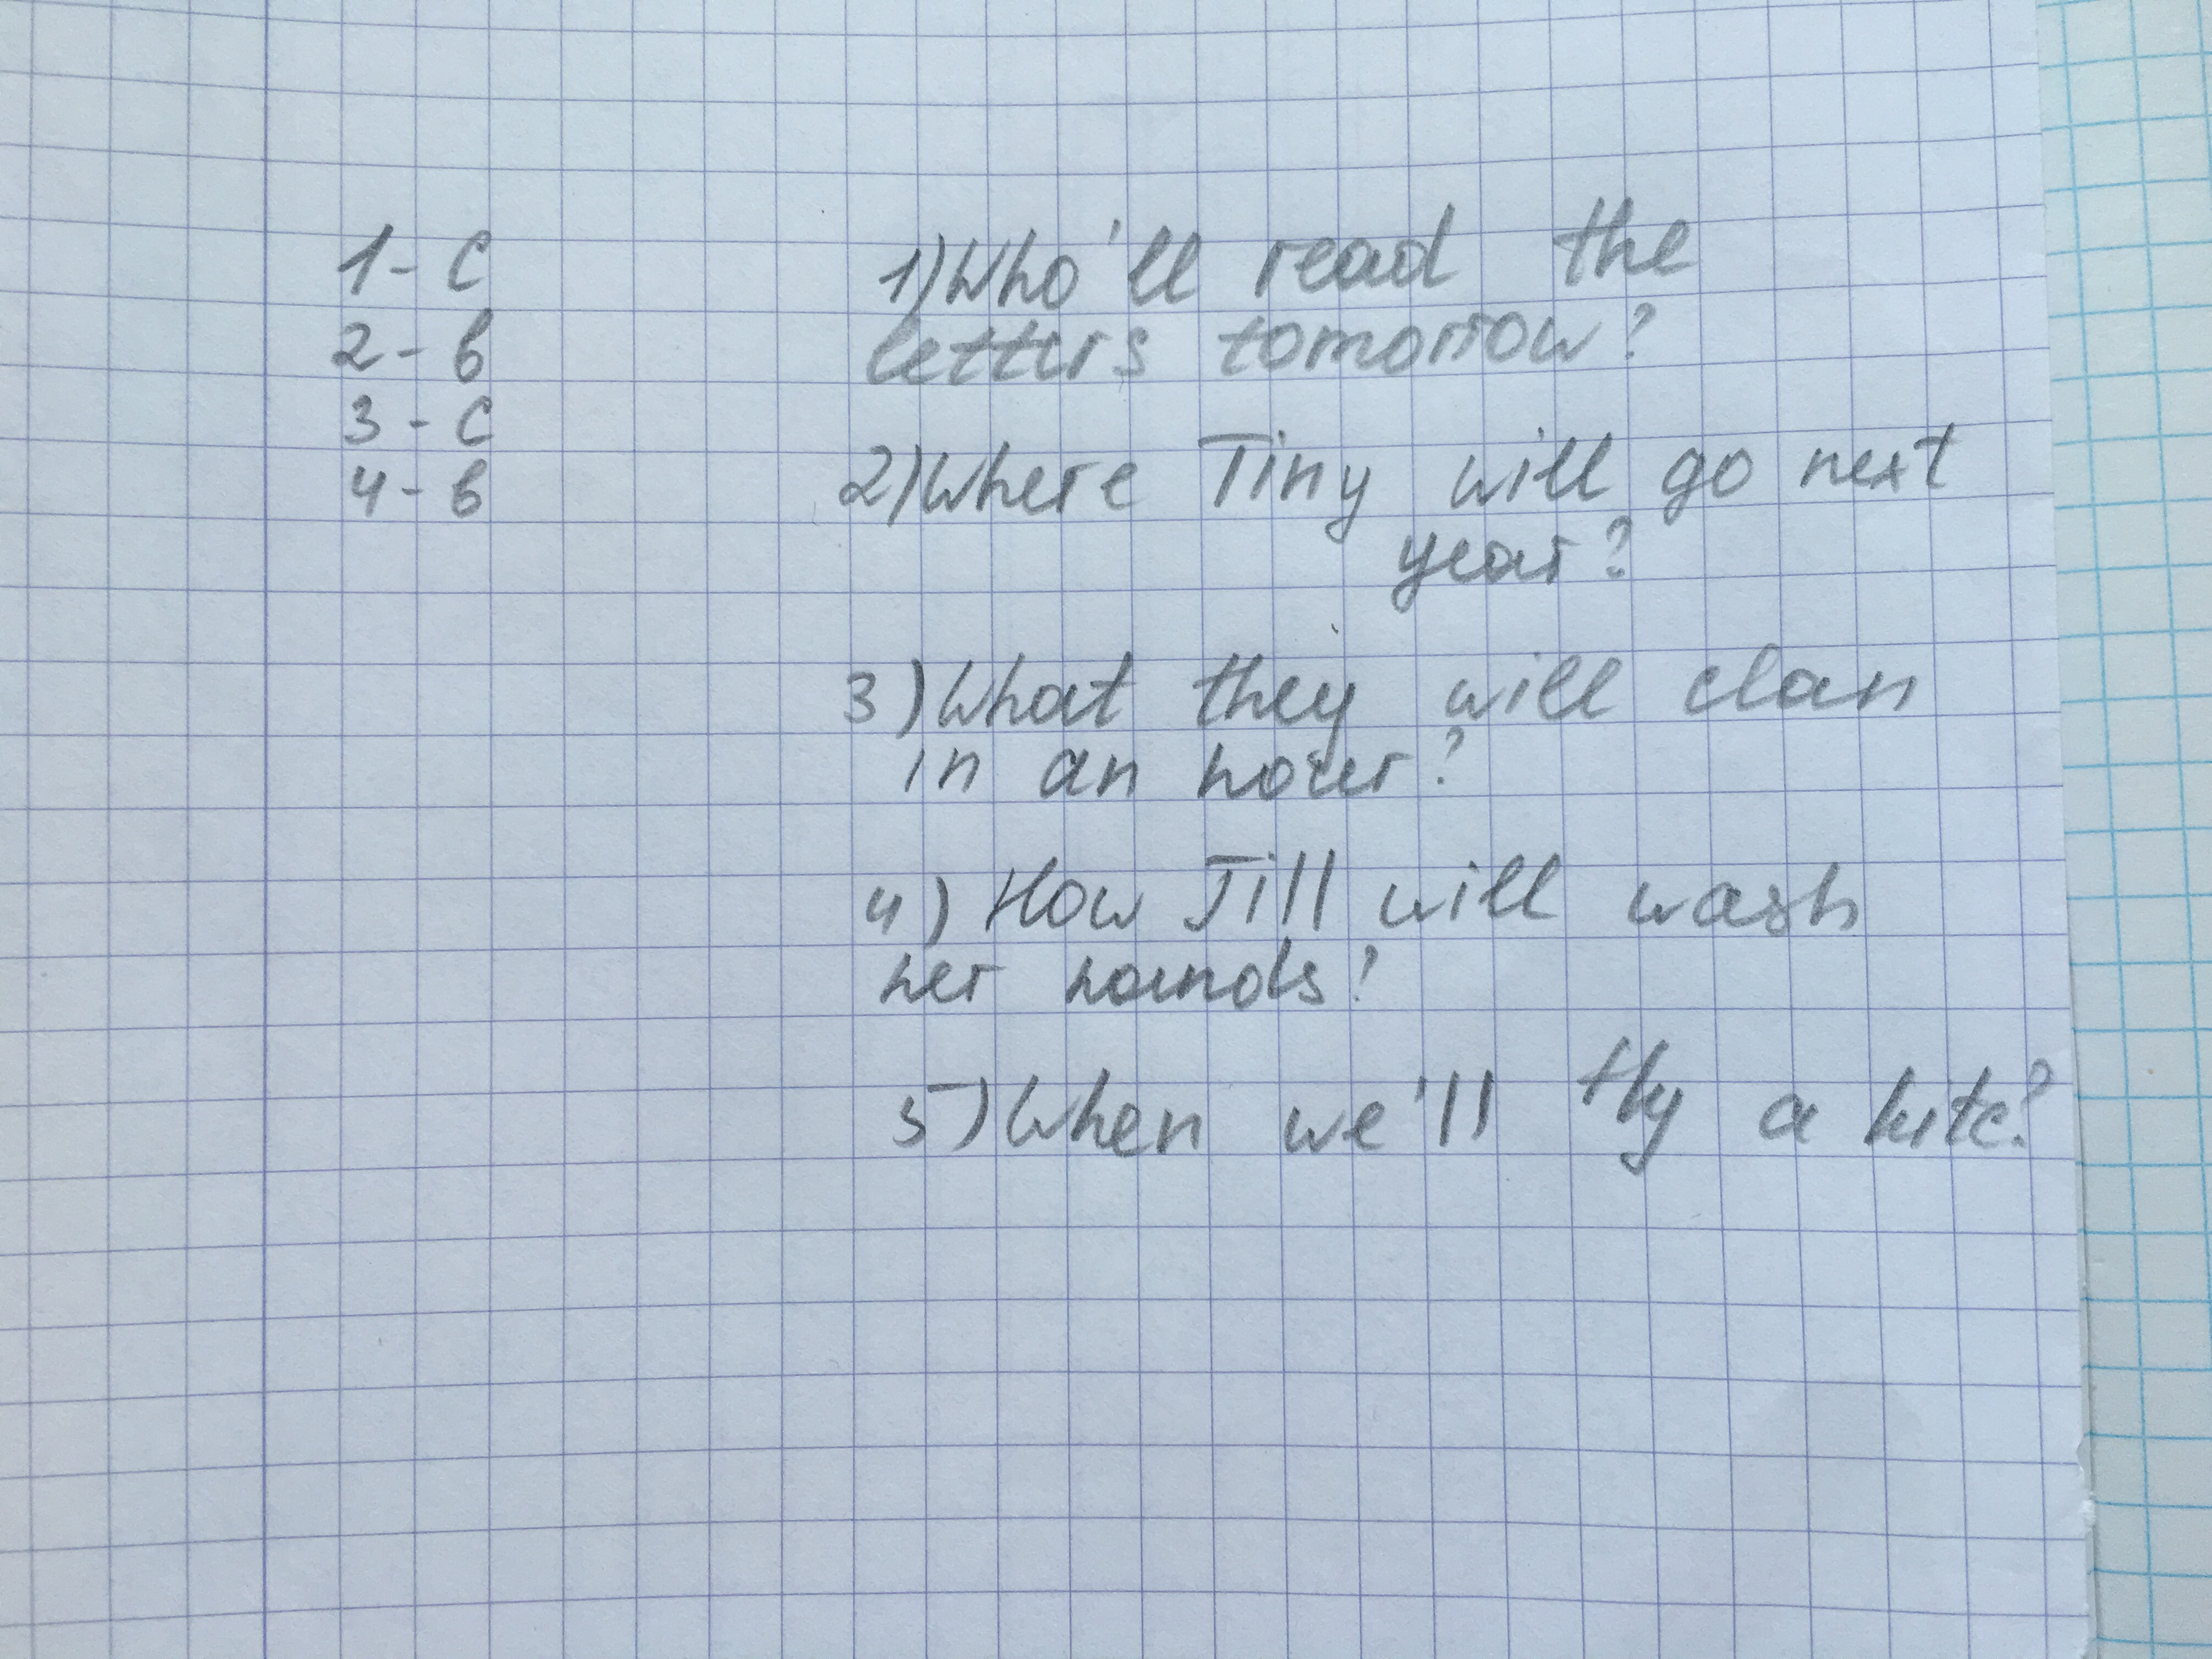 1 - c
2 - b
3 - c
4 - b
1) Who'll read the
letters tomorrow?
2) Where Tiny will go next
year?
3) What they will clan
in an hour?
4) How Jill will wash
her hands?
5) When we'll fly a kite?